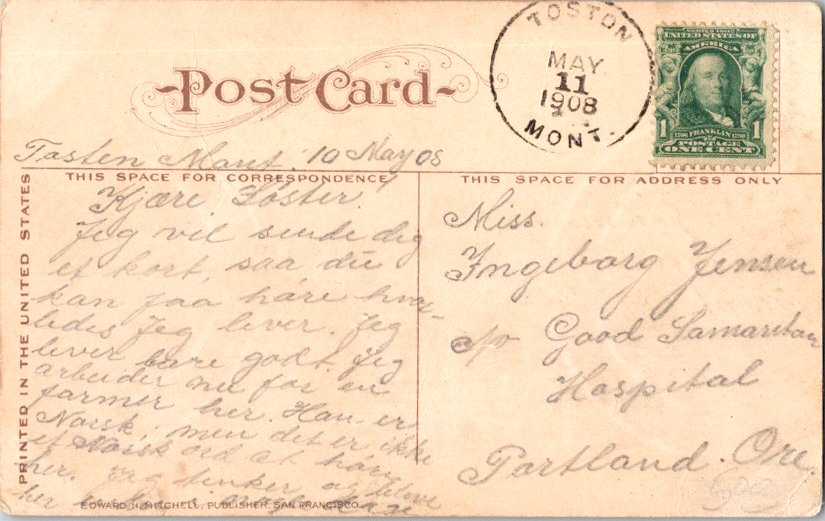 Post Card
TOSTON
MAY
11
1908
MONT.
SERIES 1902
UNITED STATES OF
AMERICA
1 FRANKLIN 1
POSTAGE
ONE CENT
Tosten Mont 10 May 08
THIS SPACE FOR CORRESPONDENCE
THIS SPACE FOR ADDRESS ONLY
PRINTED IN THE UNITED STATES
Kjære Søster!
Jeg vil sende dig
et kort, saa du
kan faa høre hvor-
ledes Jeg lever. Jeg
lever bare godt. Jeg
arbeider nu for en
farmer her. Han er
Norsk, men det er ikke
et Norsk ord at høre
her. Jeg tenker at blive
her
Miss.
Ingeborg Jensen
c/o Good Samaritan
Hospital
Portland. Ore.
EDWARD H. MITCHELL, PUBLISHER, SAN FRANCISCO.